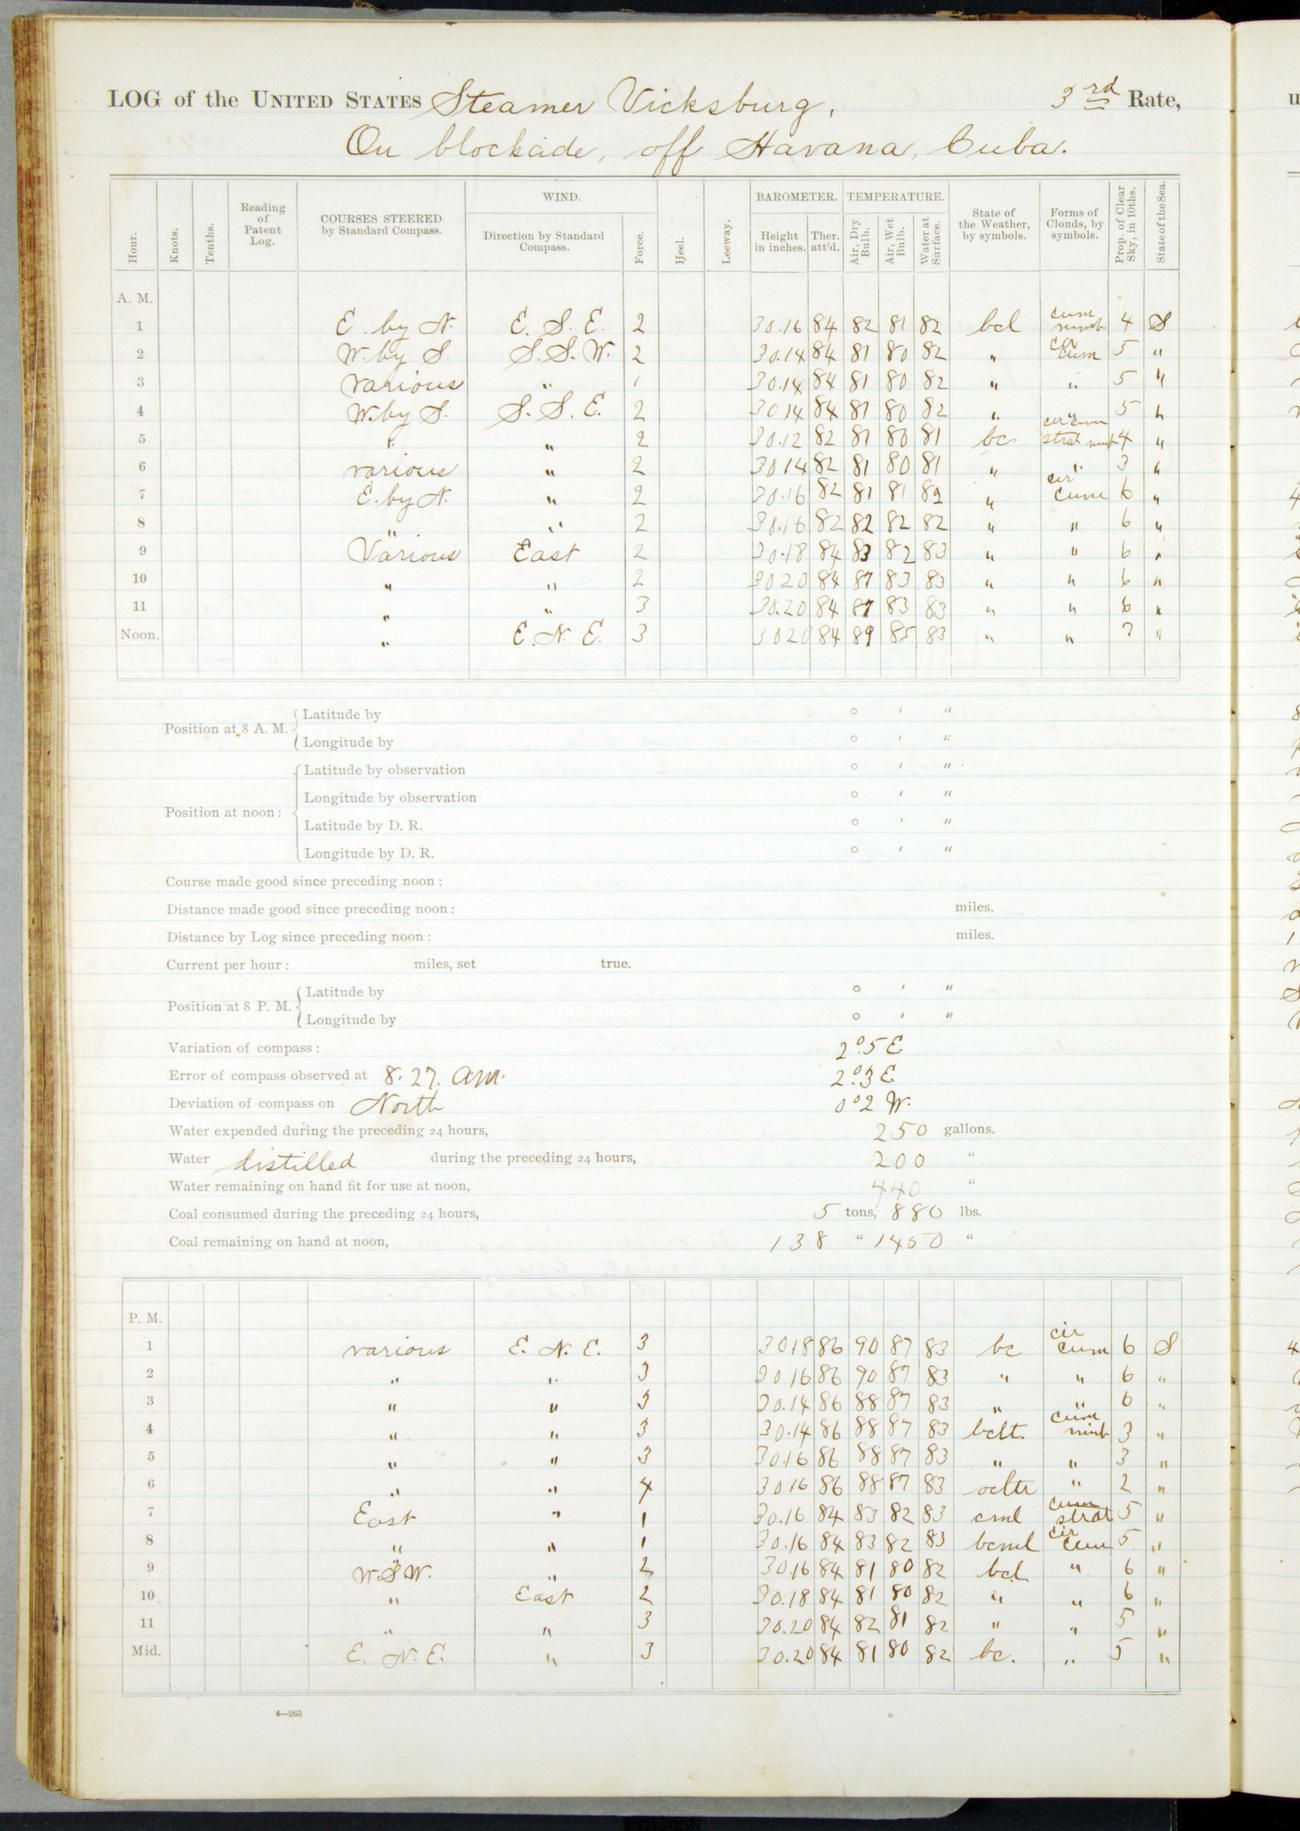 LOG of the UNITED STATES Steamer Vicksburg, 3rd Rate,
On blockade, off Havana, Cuba.
WIND. BAROMETER. TEMPERATURE.
Hour. Knots. Tenths. Reading of Patent Log. COURSES STEERED by Standard Compass. Direction by Standard Compass. Force. Heel. Leeway. Height in inches. Ther. att'd. Air, Dry Bulb. Air, Wet Bulb. Water at Surface. State of the Weather, by symbols. Forms of Clouds, by symbols. Prop. of Clear Sky, in 10ths. State of the Sea.
A. M.
1 E. by N. E. S. E. 2 30.16 84 82 81 82 bcl cum nimb 4 S
2 W. by S. S. S. W. 2 30.14 84 81 80 82 " cir cum 5 "
3 various " 1 30.14 84 81 80 82 " " 5 "
4 W. by S. S. S. E. 2 30 14 84 81 80 82 " " 5 "
5 " " 2 30.12 82 81 80 81 bc cir cum strat nimb 4 "
6 various " 2 30 14 82 81 80 81 " " 3 "
7 E. by N. " 2 30.16 82 81 81 82 " cir cum 6 "
8 " " 2 30.16 82 82 82 82 " " 6 "
9 Various East 2 30.18 84 83 82 83 " " 6 "
10 " " 2 30 20 84 87 83 83 " " 6 "
11 " " 3 30.20 84 87 83 83 " " 6 "
Noon. " E. N. E. 3 30 20 84 89 85 83 " " 7 "
Position at 8 A. M. Latitude by ° ′ ″
Longitude by ° ′ ″
Position at noon: Latitude by observation ° ′ ″
Longitude by observation ° ′ ″
Latitude by D. R. ° ′ ″
Longitude by D. R. ° ′ ″
Course made good since preceding noon:
Distance made good since preceding noon: miles.
Distance by Log since preceding noon: miles.
Current per hour: miles, set true.
Position at 8 P. M. Latitude by ° ′ ″
Longitude by ° ′ ″
Variation of compass: 2°.5 E
Error of compass observed at 8.27. am. 2°.3 E.
Deviation of compass on North 0°2 W.
Water expended during the preceding 24 hours, 250 gallons.
Water distilled during the preceding 24 hours, 200 "
Water remaining on hand fit for use at noon, 440 "
Coal consumed during the preceding 24 hours, 5 tons, 880 lbs.
Coal remaining on hand at noon, 138 " 1450 "
P. M.
1 various E. N. E. 3 30 18 86 90 87 83 bc cir cum 6 S
2 " " 3 30 16 86 90 87 83 " " 6 "
3 " " 3 30.14 86 88 87 83 " " 6 "
4 " " 3 30.14 86 88 87 83 bclt. cum nimb 3 "
5 " " 3 30.16 86 88 87 83 " " 3 "
6 " " 4 30.16 86 88 87 83 ocltr " 2 "
7 East " 1 30.16 84 83 82 83 cml cum strat 5 "
8 " " 1 30.16 84 83 82 83 bcml cir cum 5 "
9 W.S.W. " 2 30 16 84 81 80 82 bcl " 6 "
10 " East 2 30.18 84 81 80 82 " " 6 "
11 " " 3 30.20 84 82 81 82 " " 5 "
Mid. E. N. E. " 3 30.20 84 81 80 82 bc. " 5 "
4—265